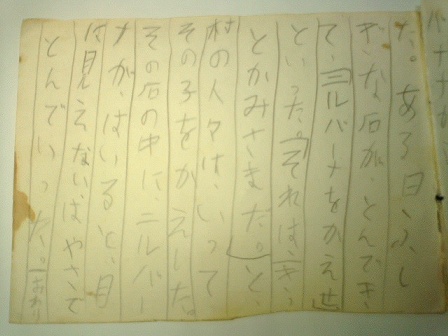 た。ある日、ふし
ぎな石が、とんでき、
て、ニルバーナをかえせ
といった。「それは、きっ
とかみさまだ。」と、
村の人々は、いって
その子をかえした。
その石の中に、ニルバー
ナが、はいると、目
は見えないはやさで
とんでいった。